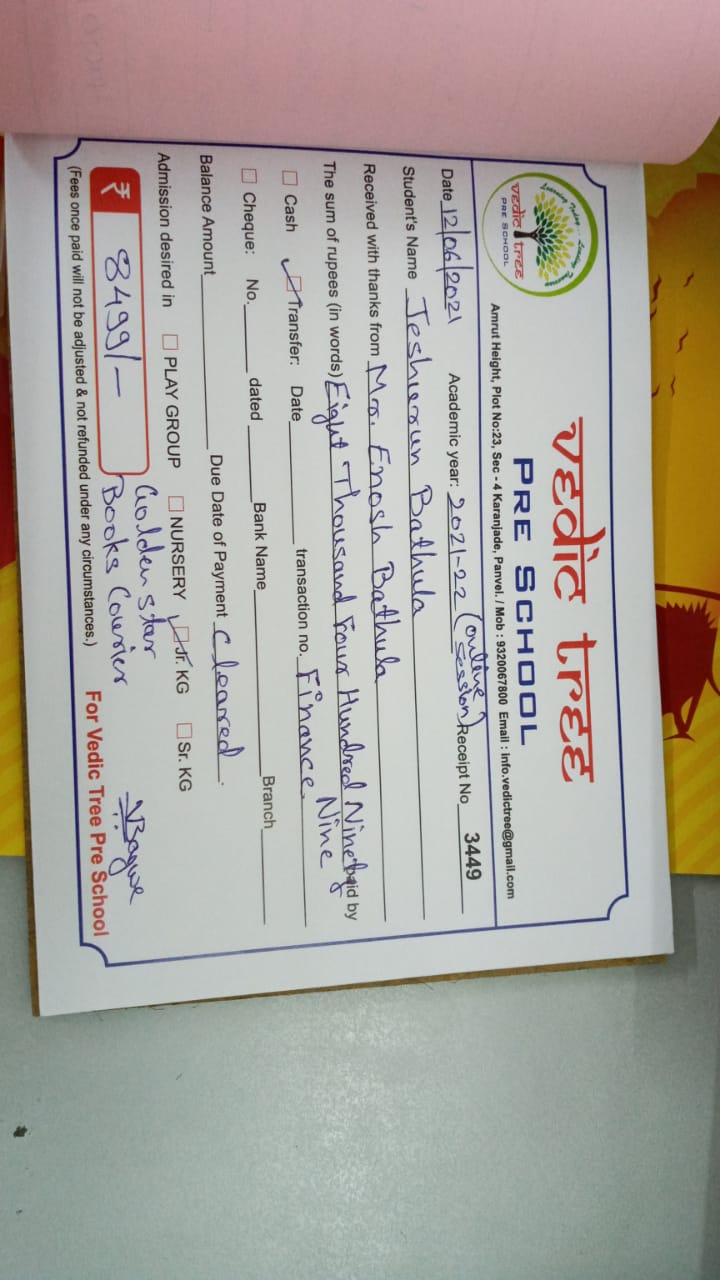 Learning Today... Leading Tomorrow
vedic tree
PRE SCHOOL
vedic tree
PRE SCHOOL
Amrut Height, Plot No:23, Sec - 4 Karanjade, Panvel. / Mob : 9320067800 Email : Info.vedictree@gmail.com
Date 12/06/2021 Academic year: 2021-22 (online session) Receipt No 3449
Student's Name Jeshurun Bathula
Received with thanks from Mr. Enosh Bathula
The sum of rupees (in words) Eight Thousand Four Hundred Ninety Nine paid by
Cash Transfer: Date transaction no. Finance.
Cheque: No. dated Bank Name Branch
Balance Amount Due Date of Payment Cleared.
Admission desired in PLAY GROUP NURSERY Jr. KG Sr. KG
₹ 8499/- Golden star
Books Courier
(Fees once paid will not be adjusted & not refunded under any circumstances.) For Vedic Tree Pre School